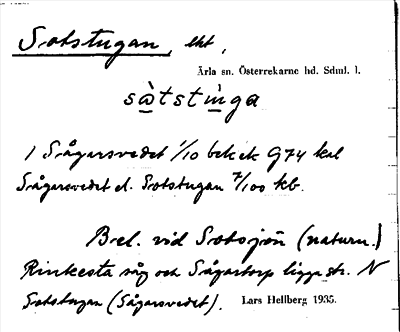 Sotstugan, lht,
Ärla sn. Österrekarne hd. Sdml. l.
sὼtstùga
1 Sågarsvedet 1/10 bck ek G74 kal
Sågarsvedet el. Sotstugan 7/100 kb.
Bel. vid Sotsjön (naturn.)
Rinkesta såg och Sågartorp ligga str. N
Sotstugan (Sågarsvedet). Lars Hellberg 1935.